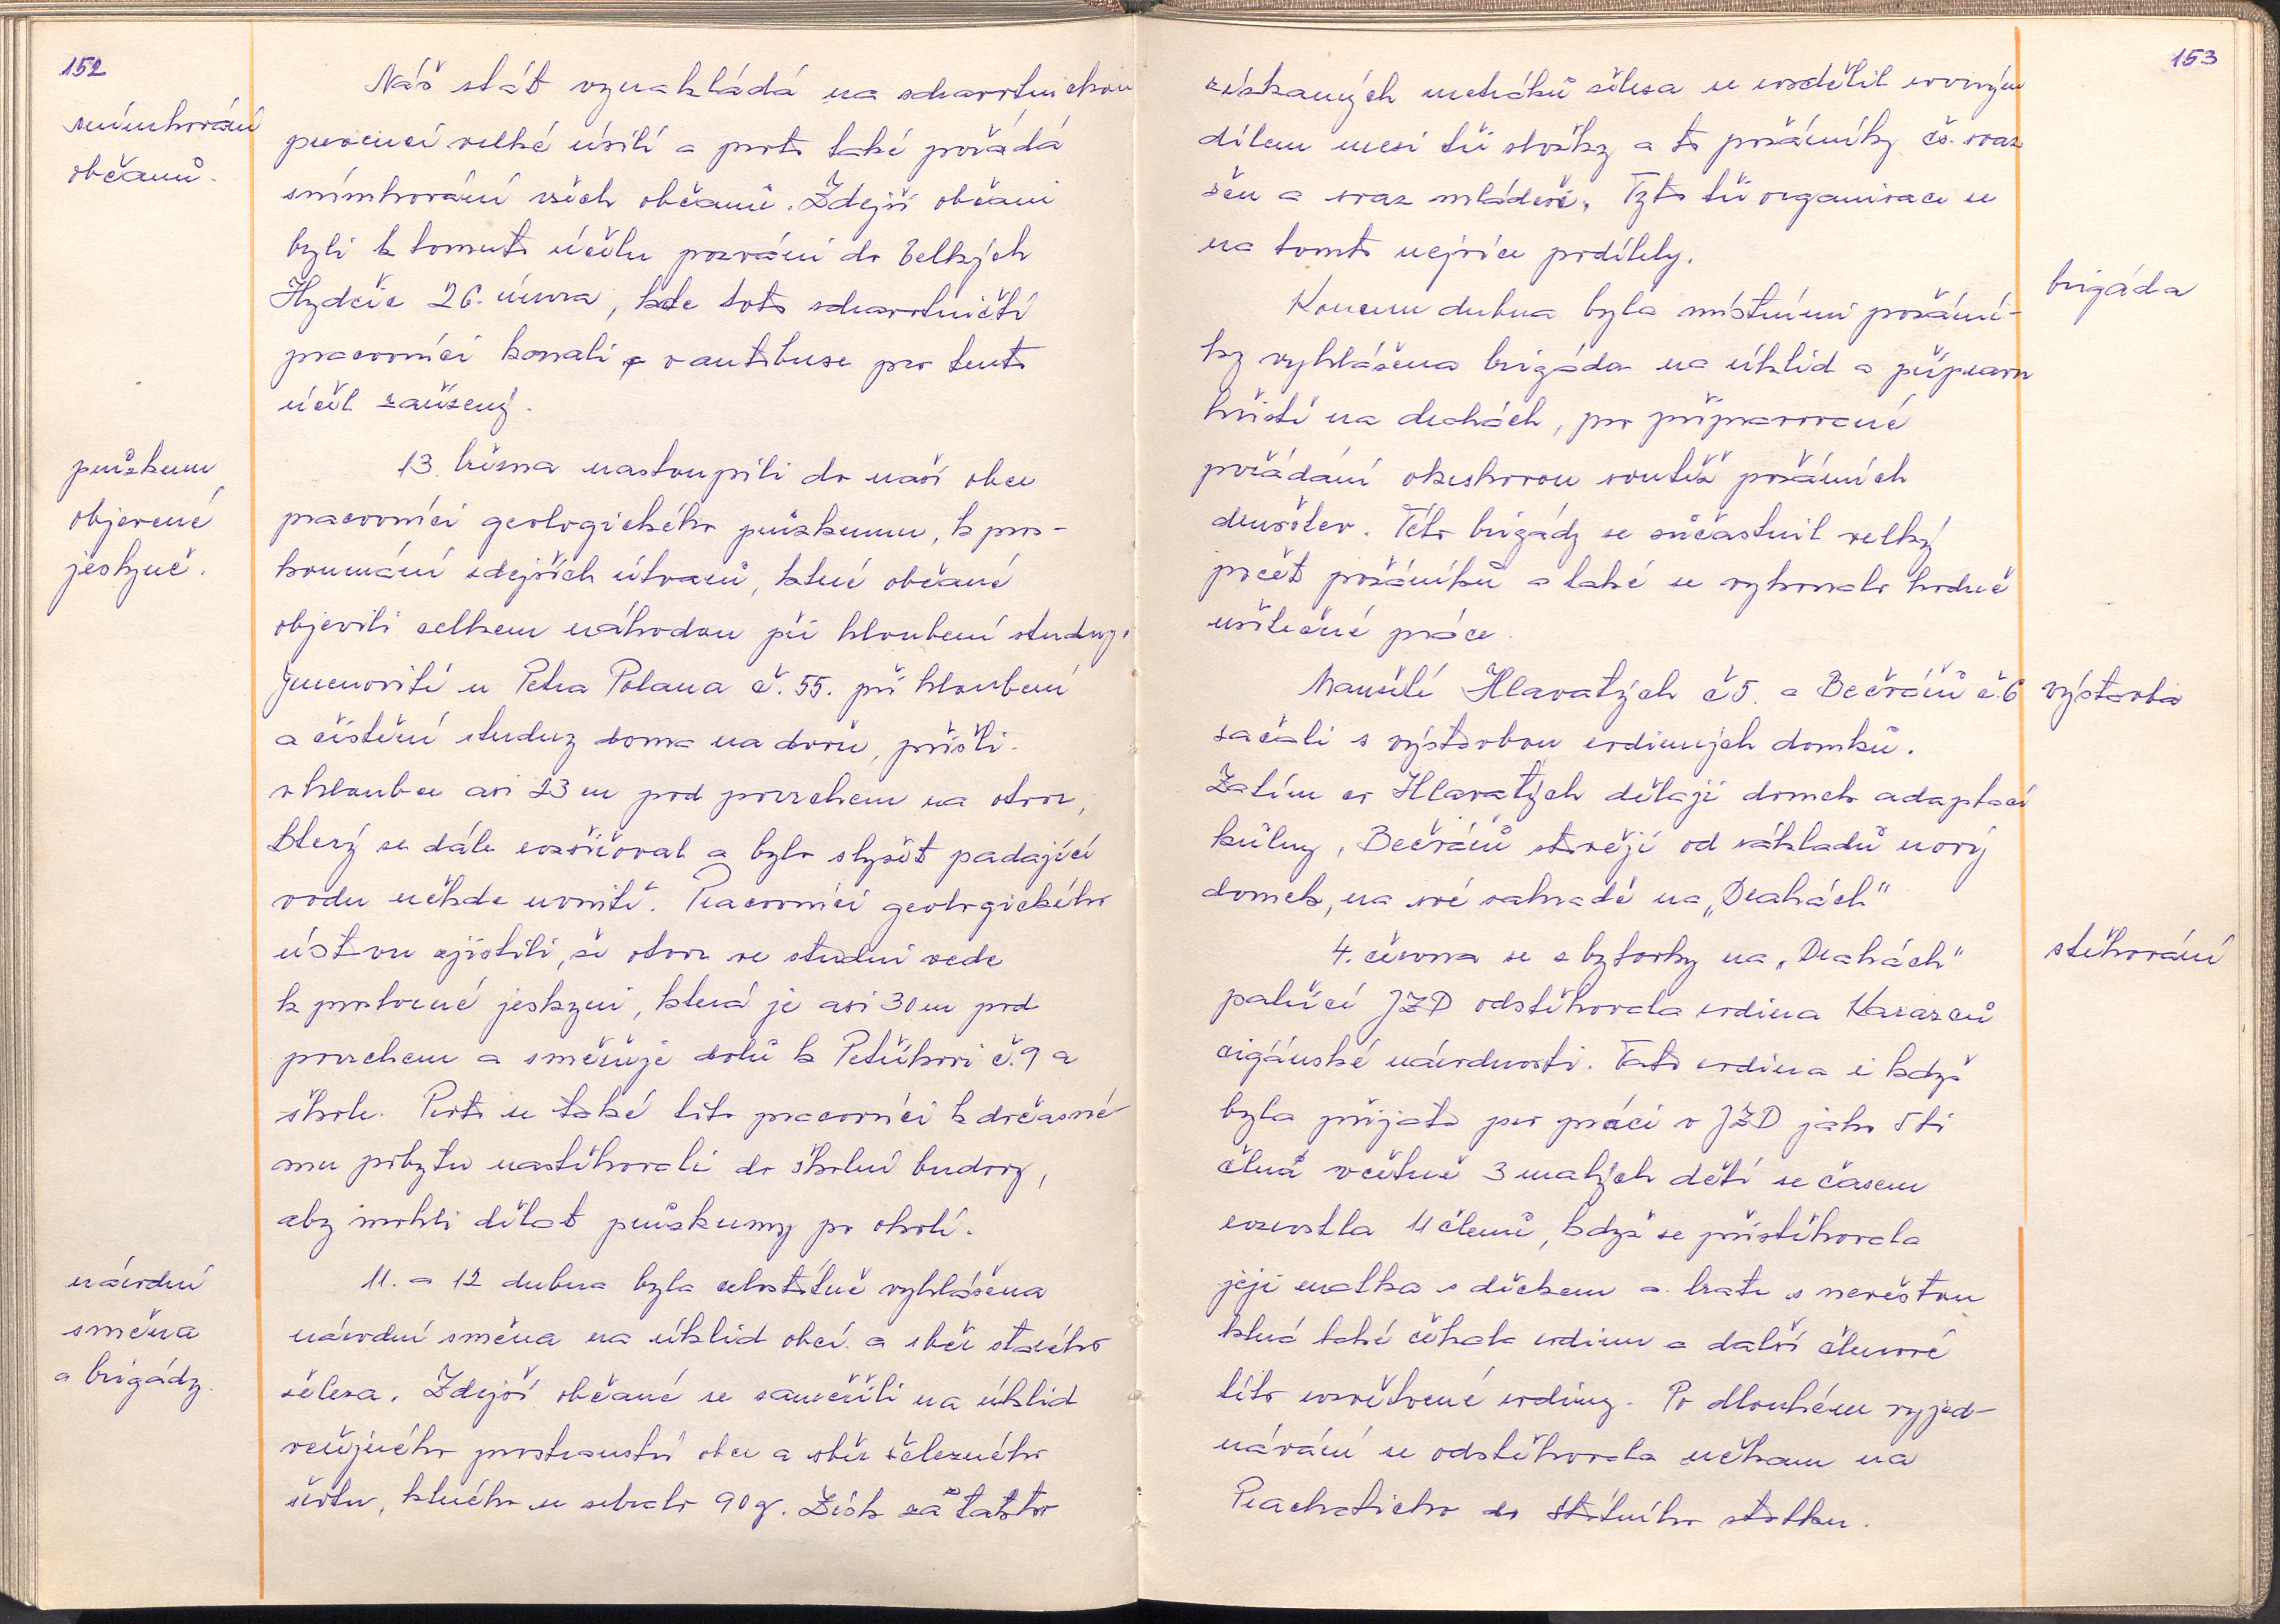 152
snímkování
občanů.
Náš stát vynakládá na zdravotnickou
prevenci velké úsilí a proto také pořádá
snímkování všech občanů. Zdejší občani
byli k tomuto účelu pozváni do Velkých
Hydčic 26. února, kde toto zdravotničtí
pracovníci konali v autobuse pro tento
účel zařízený.
průzkum
objevené
jeskyně.
13. března nastoupili do naší obce
pracovníci geologického průzkumu, k pro-
koumání zdejších útvarů, které občané
objevili celkem náhodou při hloubení studny.
Jmenovitě u Petra Polana č. 55. při hloubení
a čistění studny doma na dvoře, přišli
v hloubce asi 23 m pod povrchem na otvor,
který se dále rozšiřoval a bylo slyšet padající
vodu někde uvnitř. Pracovníci geologického
ústavu zjistili, že otvor ve studni vede
k prostorné jeskyni, která je asi 30 m pod
povrchem a směřuje dolů k Petříkovi č. 9 a
škole. Proto se také tito pracovníci k dočasné-
mu pobytu nastěhovali do školní budovy,
aby mohli dělat průzkumy po okolí.
národní
směna
a brigády.
11. a 12 dubna byla celostátně vyhlášena
národní směna na úklid obcí a sběr starého
železa. Zdejší občané se zaměřili na úklid
veřejného prostranství obce a sběr železného
šrotu, kterého se sebralo 90 q. Zisk za takto
153
získaných metráků železa se rozdělil rovným
dílem mezi tři složky a to požárníky čs. svaz
žen a svaz mládeže. Tyto tři organizace se
na tomto nejvíce podílely.
brigáda
Koncem dubna byla místními požární-
ky vyhlášena brigáda na úklid a přípravu
hřiště na drahách, pro připravované
pořádání okrskovou soutěž požárních
družstev. Této brigády se súčastnil velký
počet požárníků a také se vykonalo hodně
užitečné práce.
výstavba
Manželé Hlavatých č 5. a Bečvářů č. 6
začali s výstavbou rodinných domků.
Zatím co Hlavatých dělají domek adaptací
kůlny, Bečvářů stavějí od základů nový
domek, na své zahradě na „Drahách"
stěhování
4. června se z bytovky na „Drahách"
patřící JZD odstěhovala rodina Kazarů
cigánské národnosti. Tato rodina i když
byla přijata pro práci v JZD jako 5ti
členná včetně 3 malých dětí se časem
rozrostla 11 členů, když se přistěhovala
její matka s děckem a bratr s nevěstou
která také čekala rodinu a další členové
této rozvětvené rodiny. Po dlouhém vyjed-
návání se odstěhovala někam na
Prachaticko do státního statku.